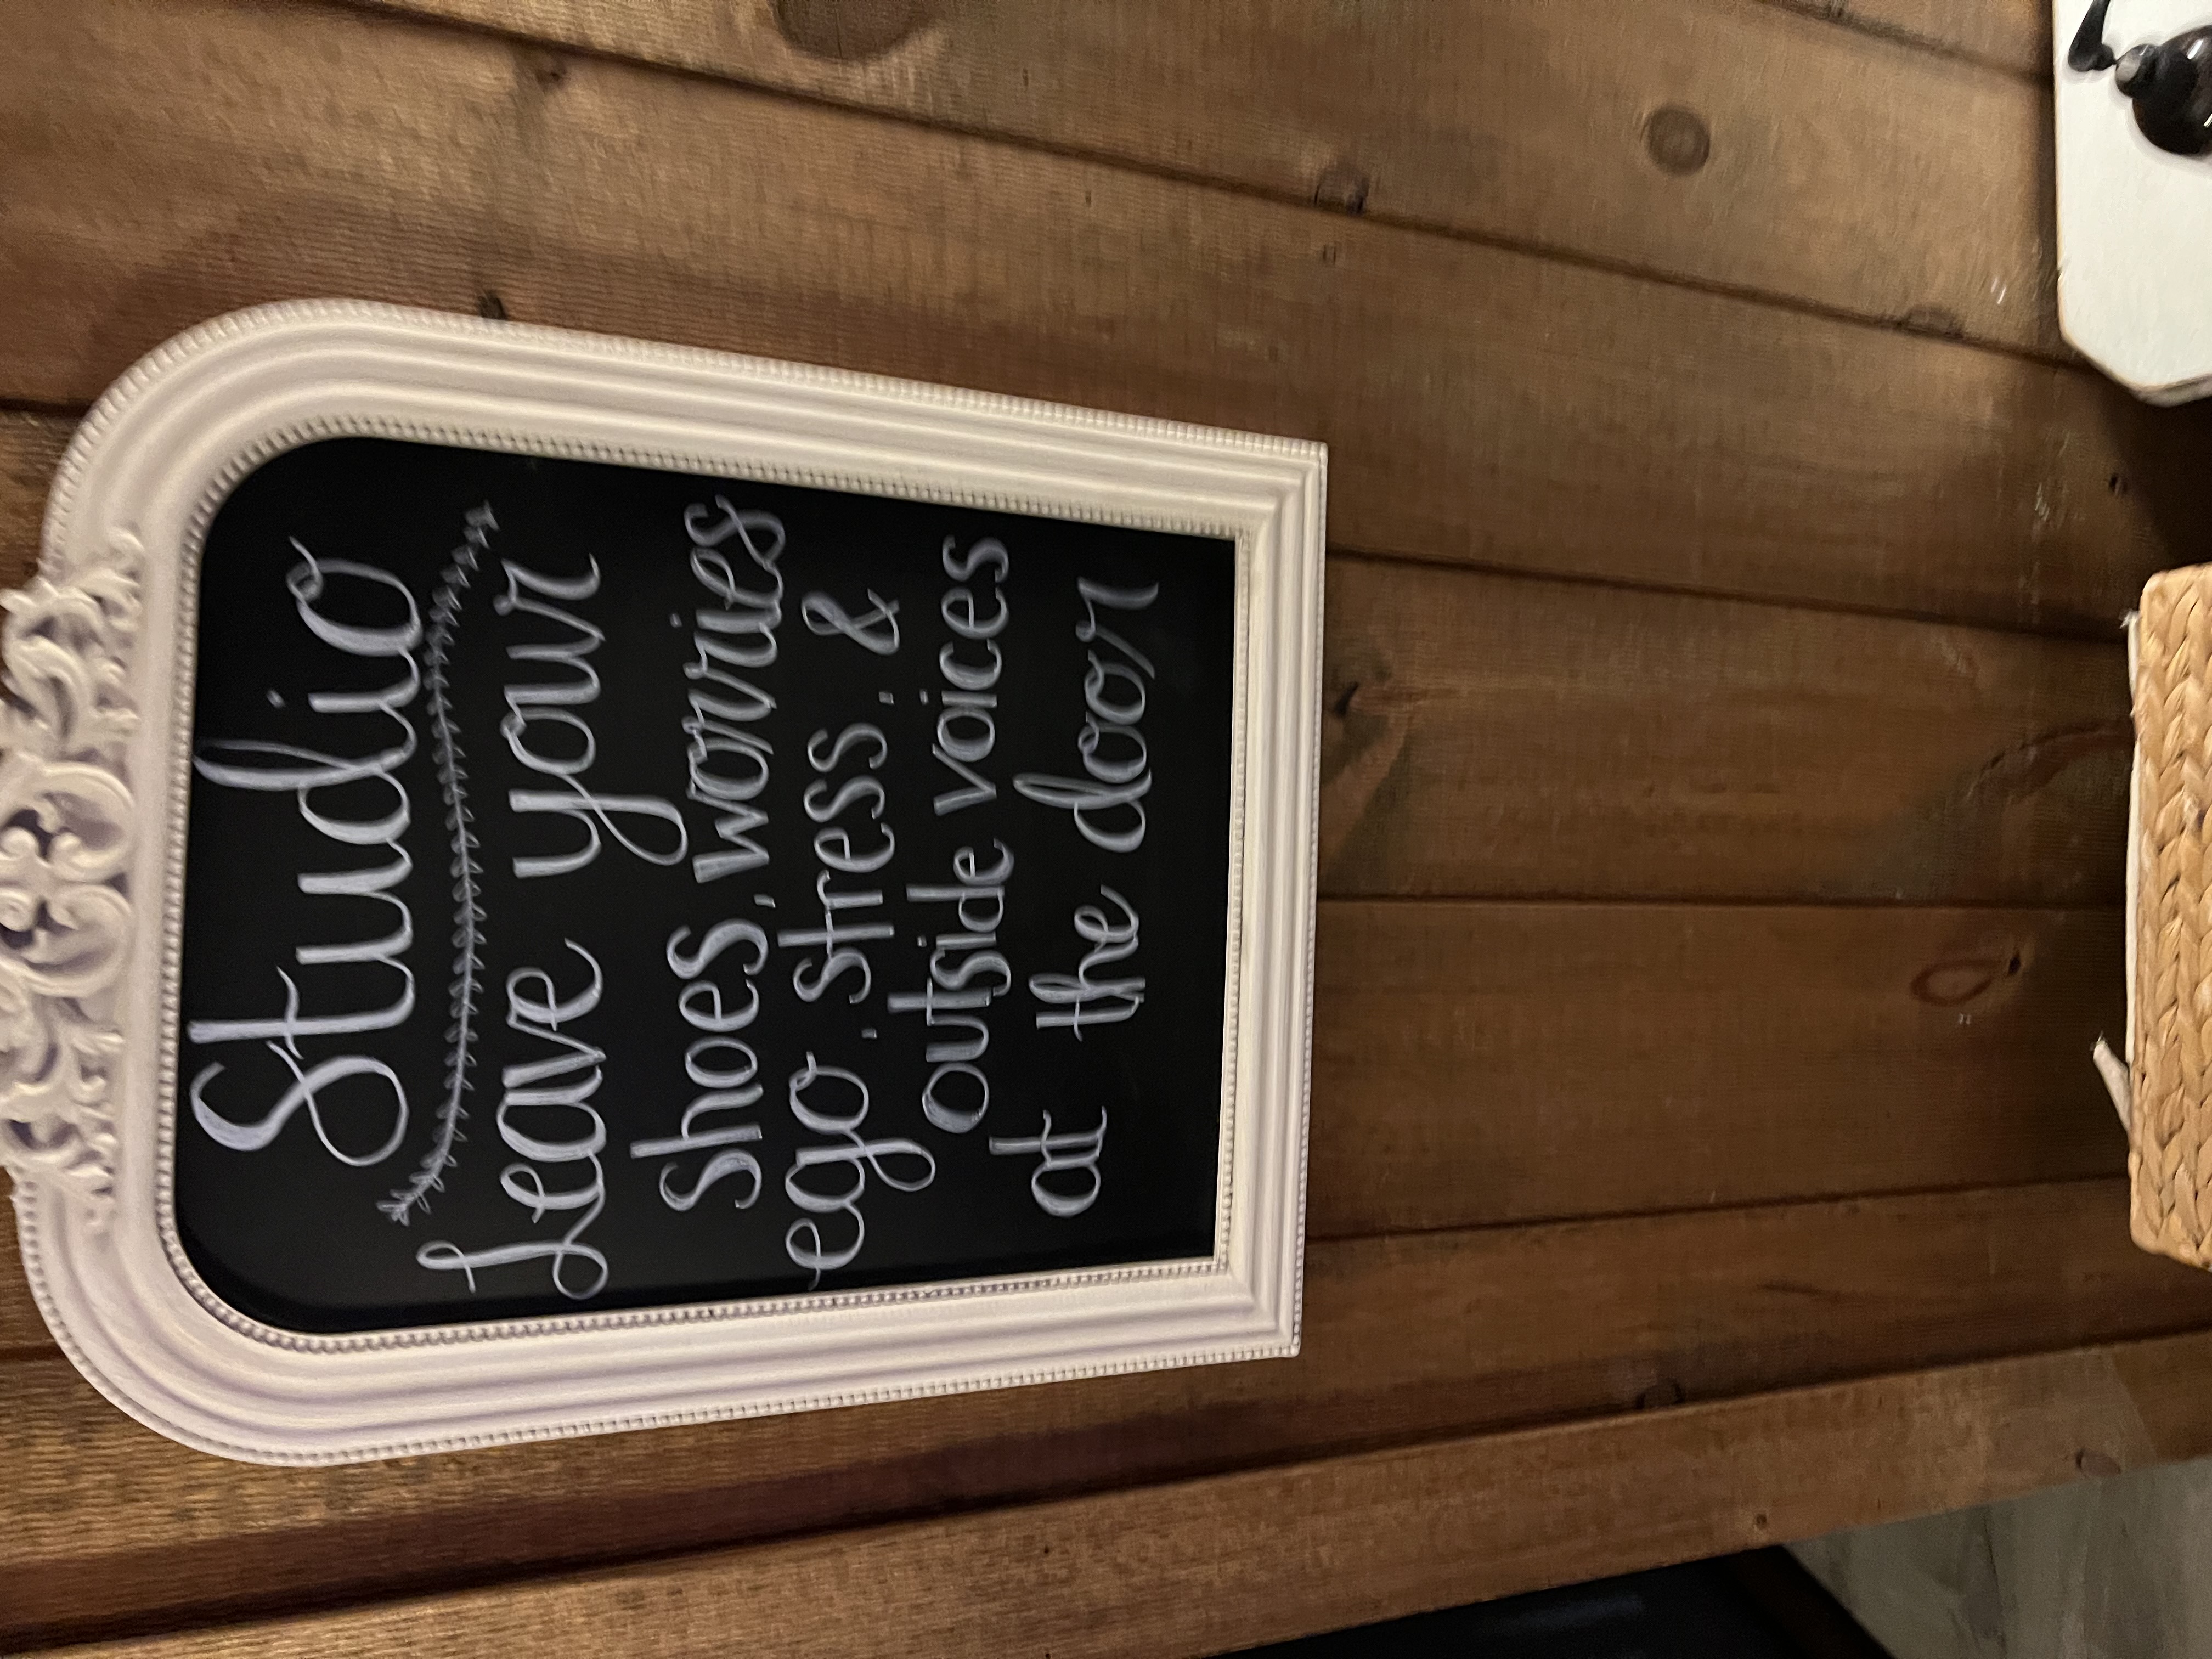 Studio
Leave your
shoes, worries
ego, stress, &
outside voices
at the door